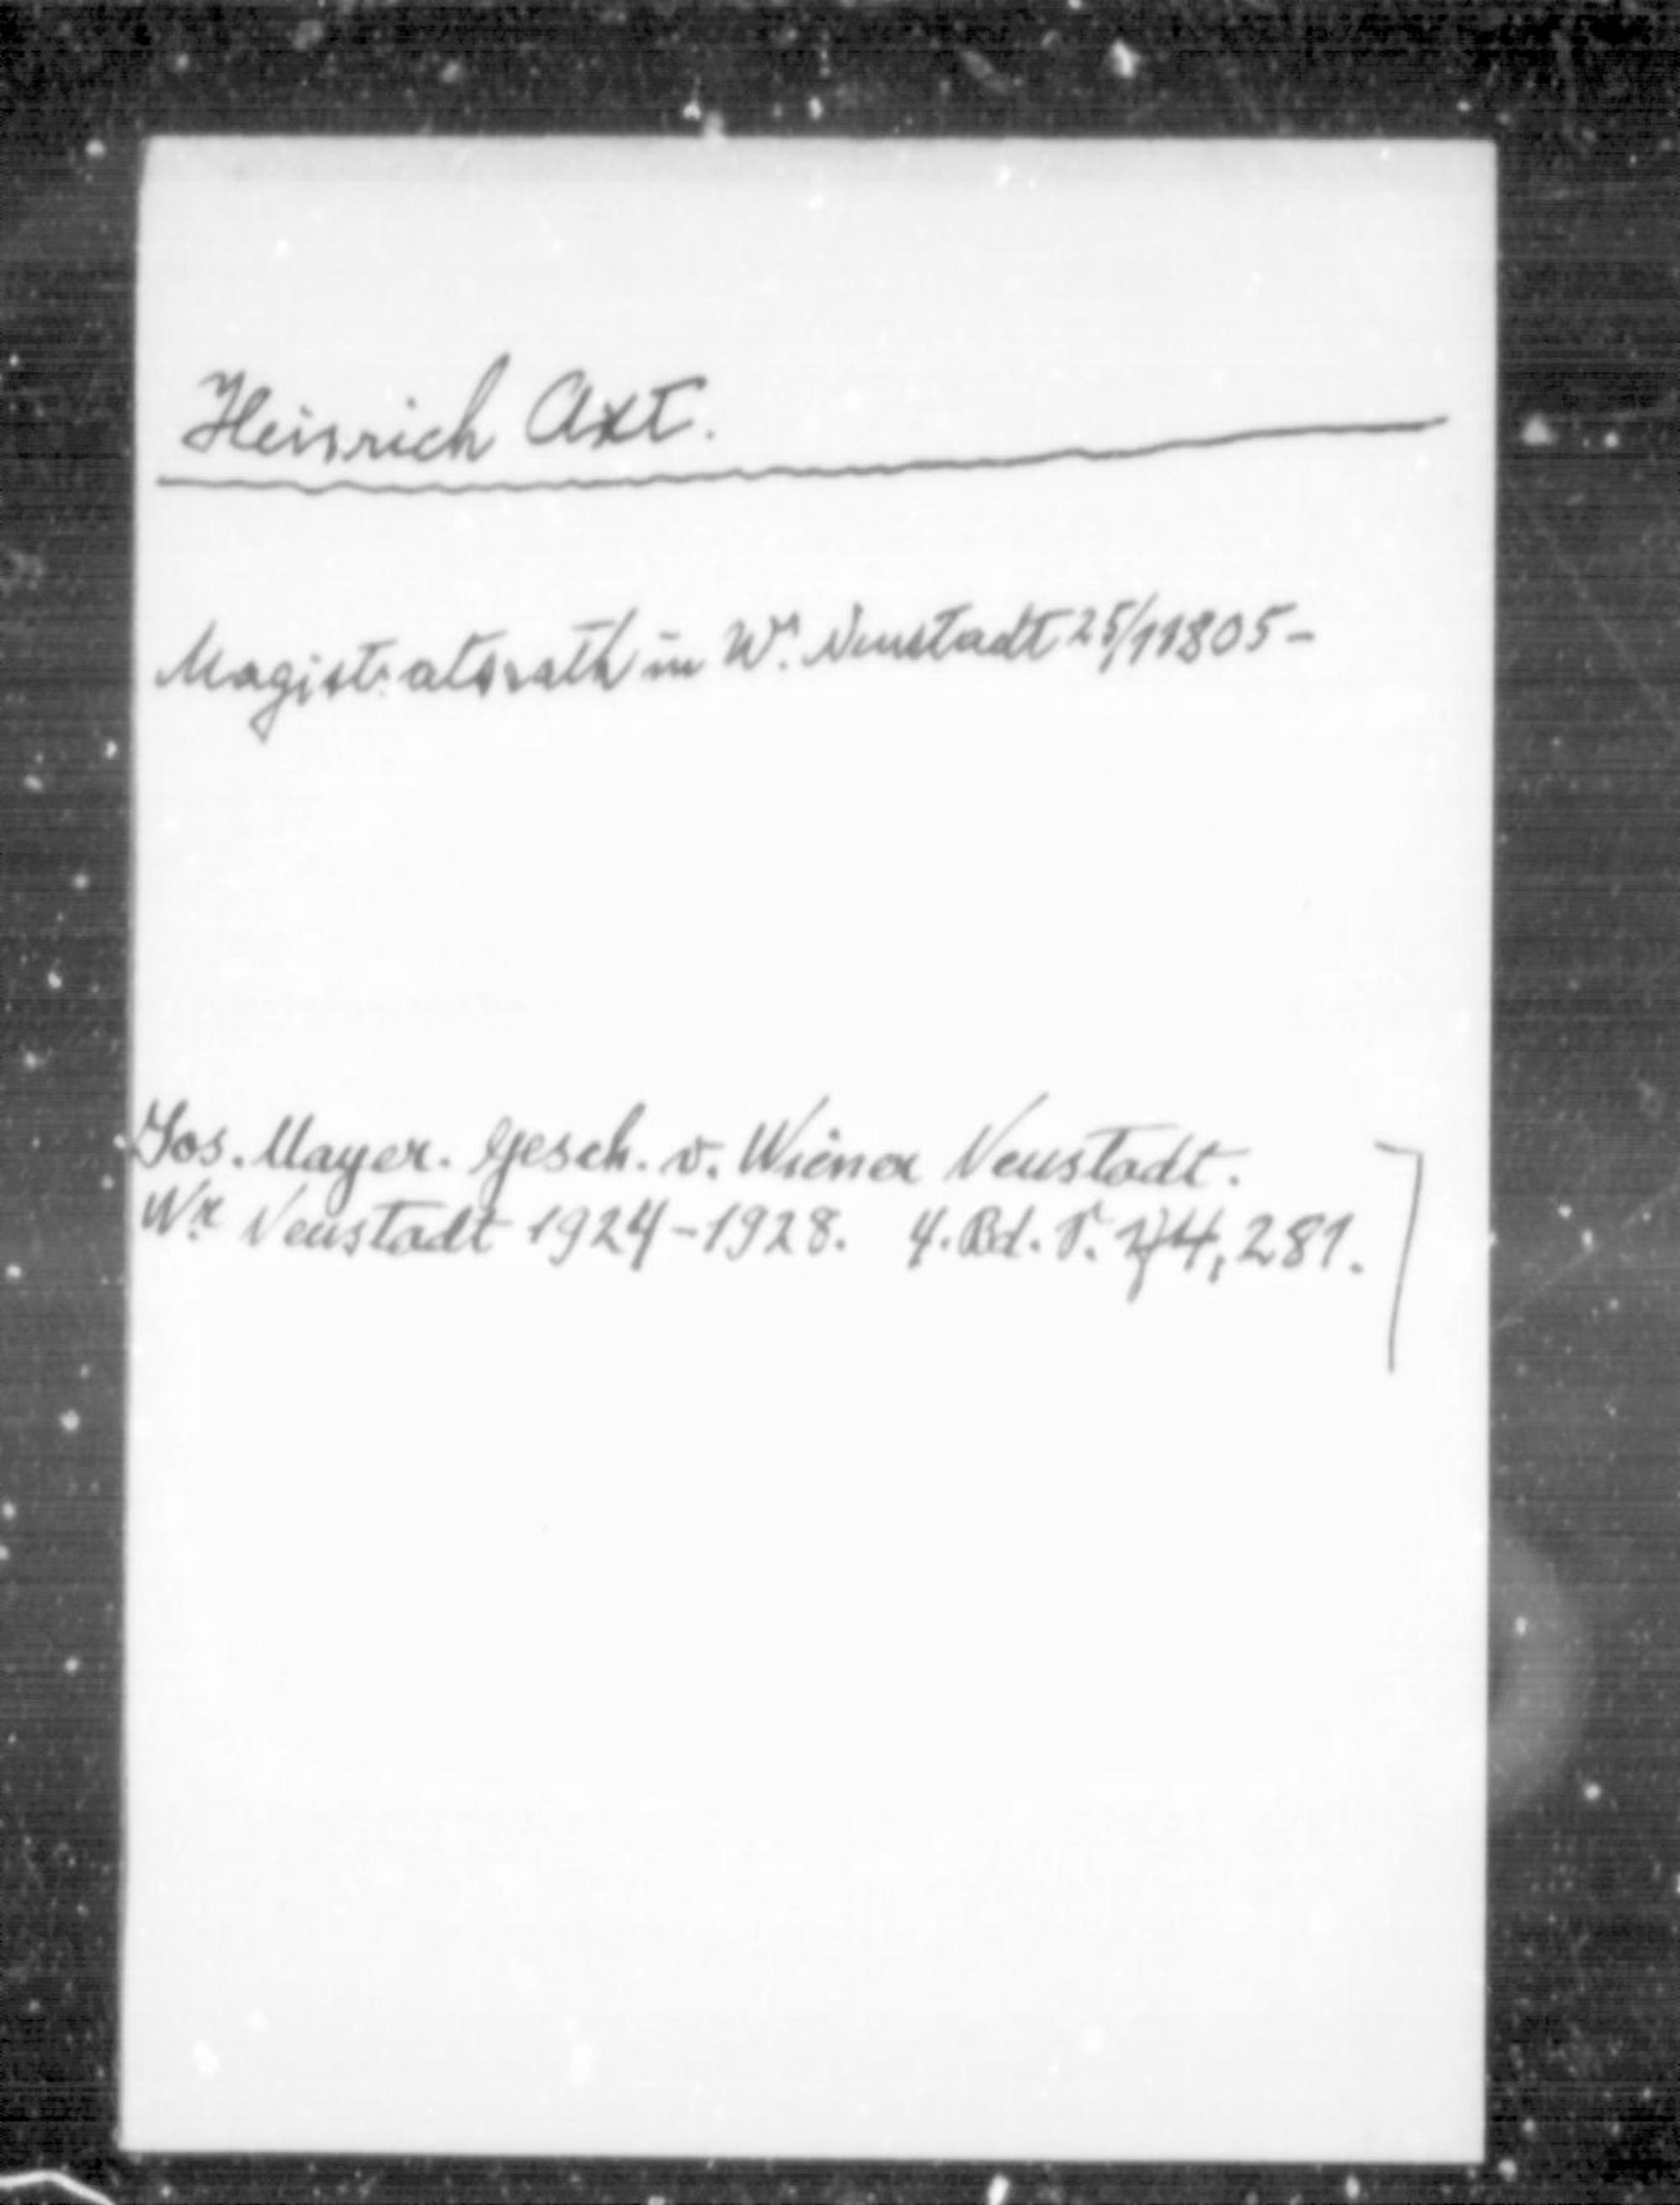 Heinrich Axt.
Magistratsrath in Wr. Neustadt 25/11805-
Jos. Mayer. Gesch. v. Wiener Neustadt.
Wr Neustadt 1924-1928. 4. Bd. S. 281.